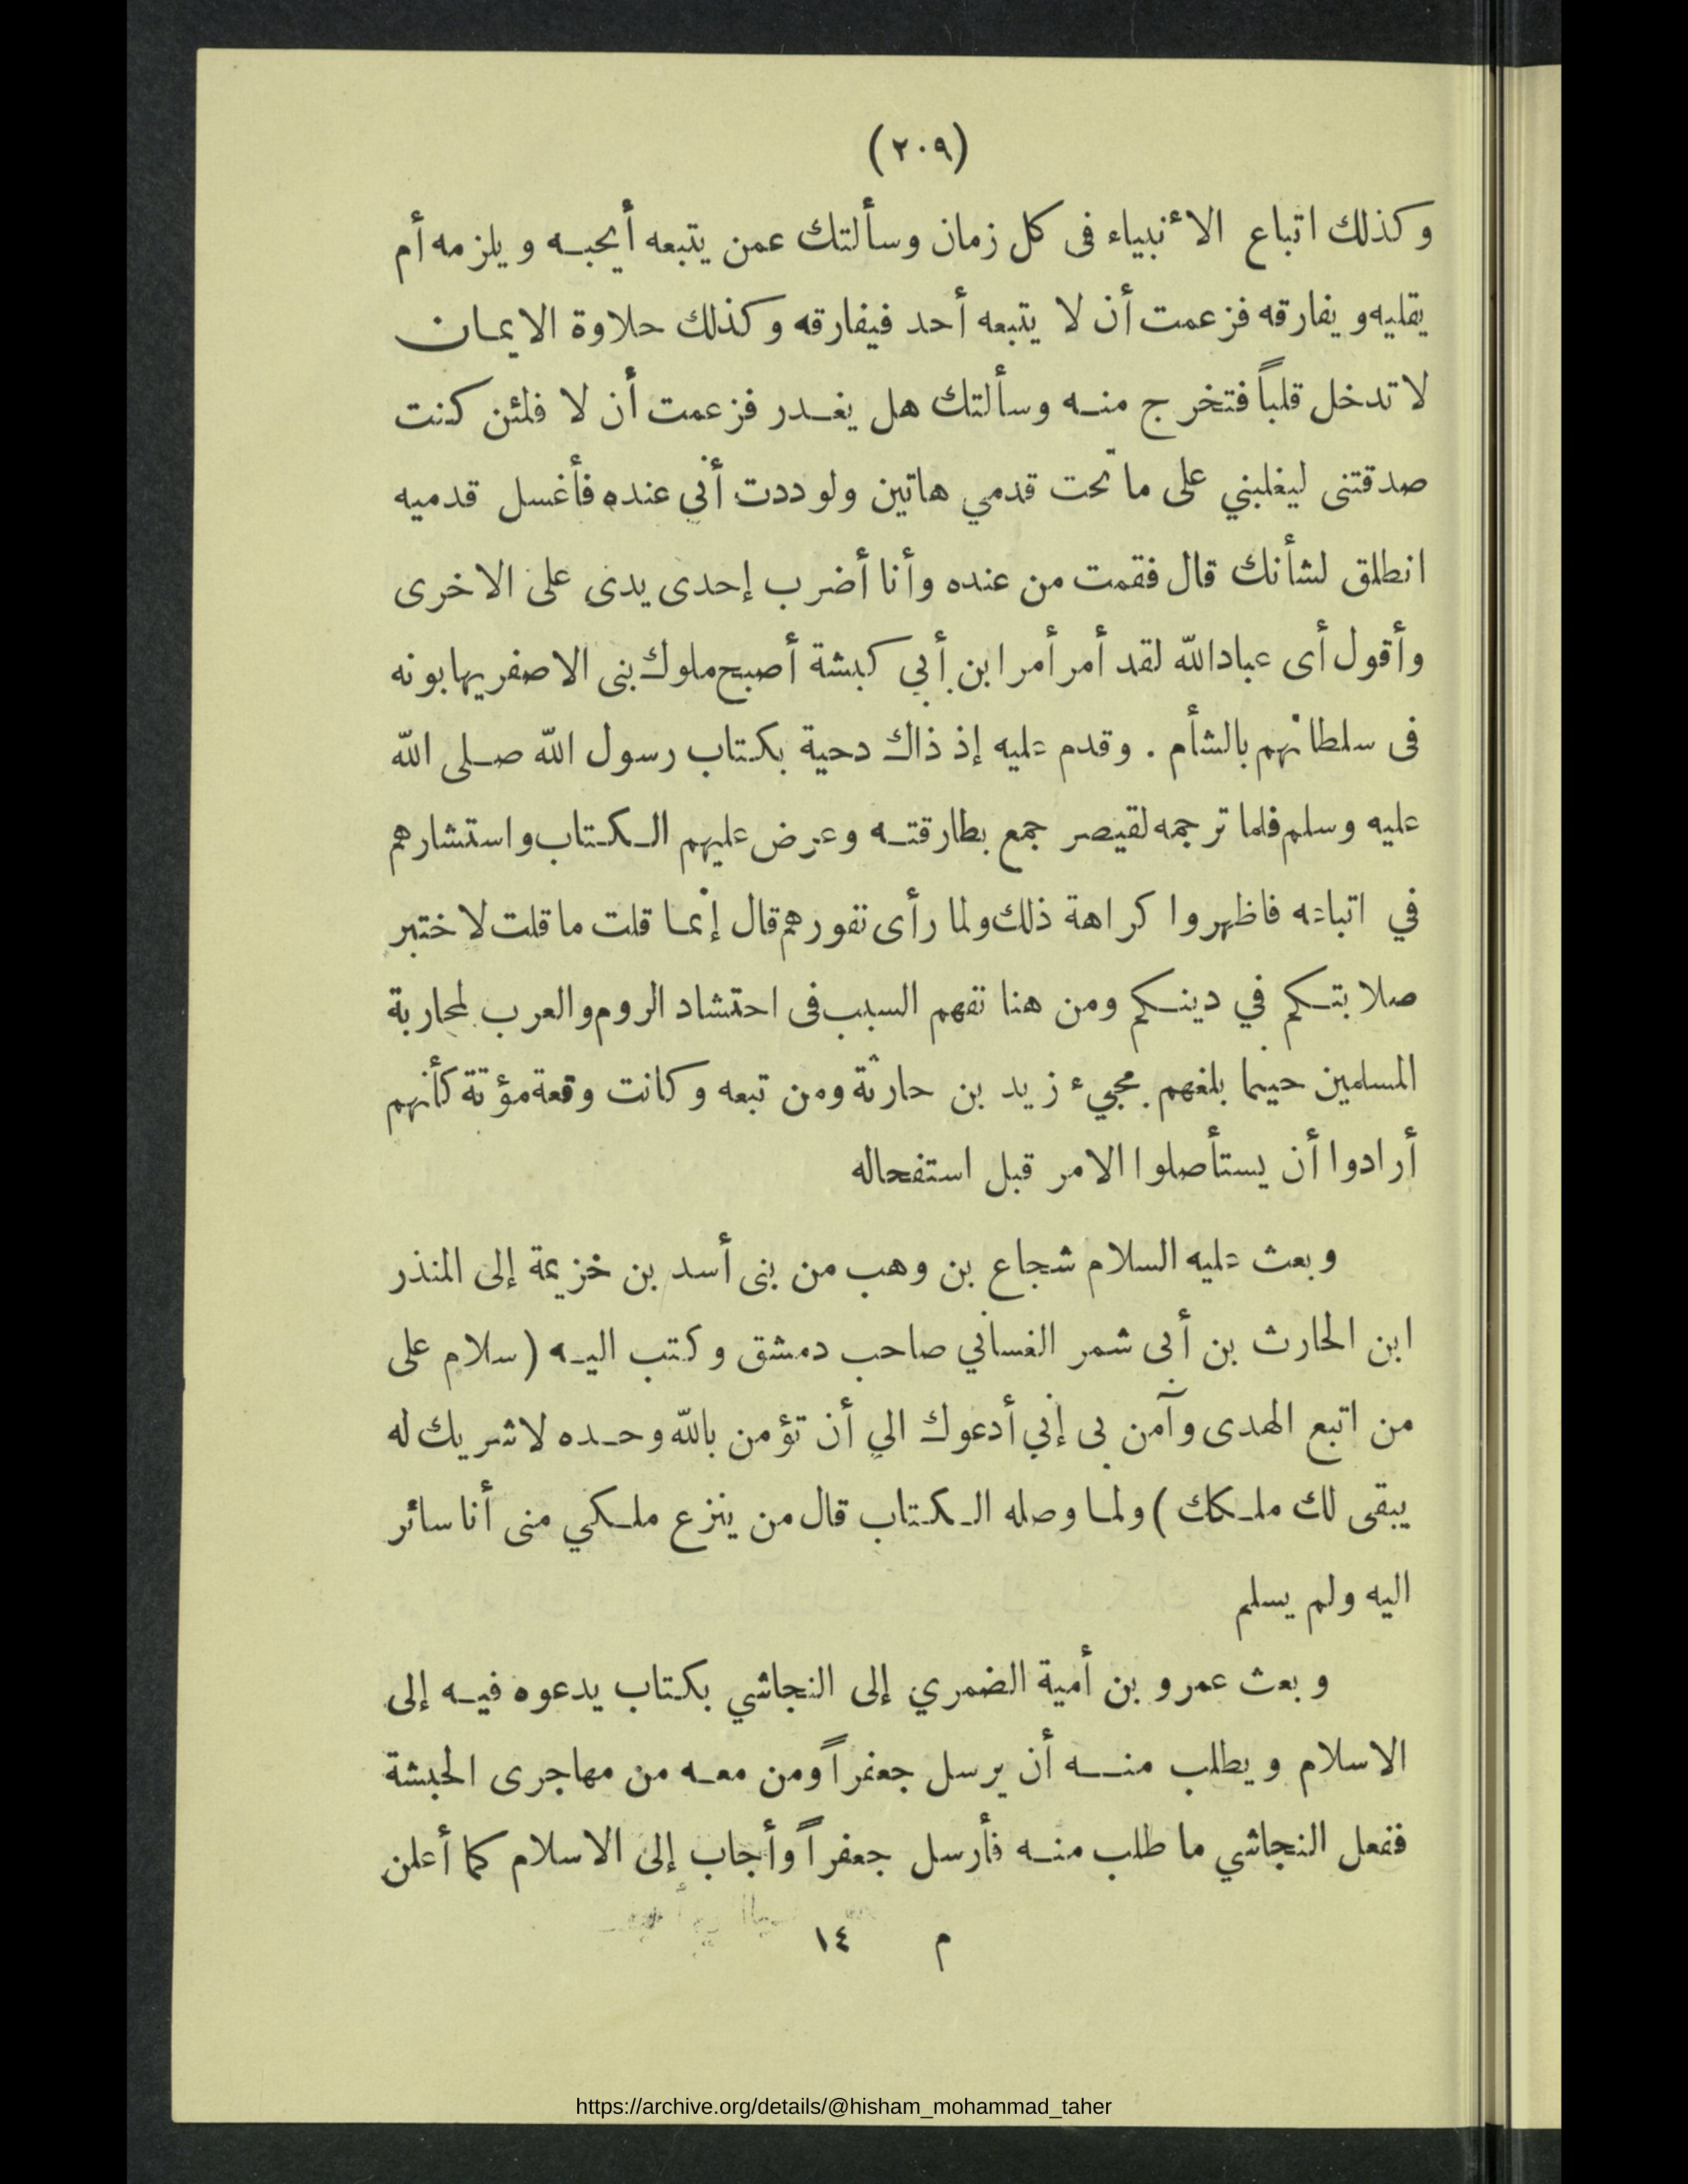 (٢٠٩)
وكذلك اتباع الأنبياء فى كل زمان وسألتك عمن يتبعه أيحبه ويلزمه أم
يقليه ويفارقه فزعمت أن لا يتبعه أحد فيفارقه وكذلك حلاوة الايمان
لا تدخل قلباً فتخرج منه وسألتك هل يغدر فزعمت أن لا فلئن كنت
صدقتنى ليغلبني على ما تحت قدمي هاتين ولوددت أني عنده فأغسل قدميه
انطلق لشأنك قال فقمت من عنده وأنا أضرب إحدى يدى على الاخرى
وأقول أى عبادالله لقد أمر أمر ابن أبي كبشة أصبح ملوك بنى الاصفر يهابونه
فى سلطانهم بالشأم . وقدم عليه إذ ذاك دحية بكتاب رسول الله صلى الله
عليه وسلم فلما ترجمه لقيصر جمع بطارقته وعرض عليهم الكتاب واستشارهم
في اتباعه فاظهروا كراهة ذلك ولما رأى نفورهم قال إنما قلت ما قلت لاختبر
صلابتكم في دينكم ومن هنا تفهم السبب فى احتشاد الروم والعرب لمحاربة
المسلمين حينما بلغهم مجيء زيد بن حارثة ومن تبعه وكانت وقعة مؤتة كأنهم
أرادوا أن يستأصلوا الامر قبل استفحاله
وبعث عليه السلام شجاع بن وهب من بنى أسد بن خزيمة إلى المنذر
ابن الحارث بن أبى شمر الغساني صاحب دمشق وكتب اليه (سلام على
من اتبع الهدى وآمن بى إني أدعوك الي أن تؤمن بالله وحده لاشريك له
يبقى لك ملكك ) ولما وصله الكتاب قال من ينزع ملكي منى أنا سائر
اليه ولم يسلم
وبعث عمرو بن أمية الضمري إلى النجاشي بكتاب يدعوه فيه إلى
الاسلام ويطلب منه أن يرسل جعفراً ومن معه من مهاجرى الحبشة
ففعل النجاشي ما طلب منه فأرسل جعفراً وأجاب إلى الاسلام كما أعلن
م ١٤
https://archive.org/details/@hisham_mohammad_taher